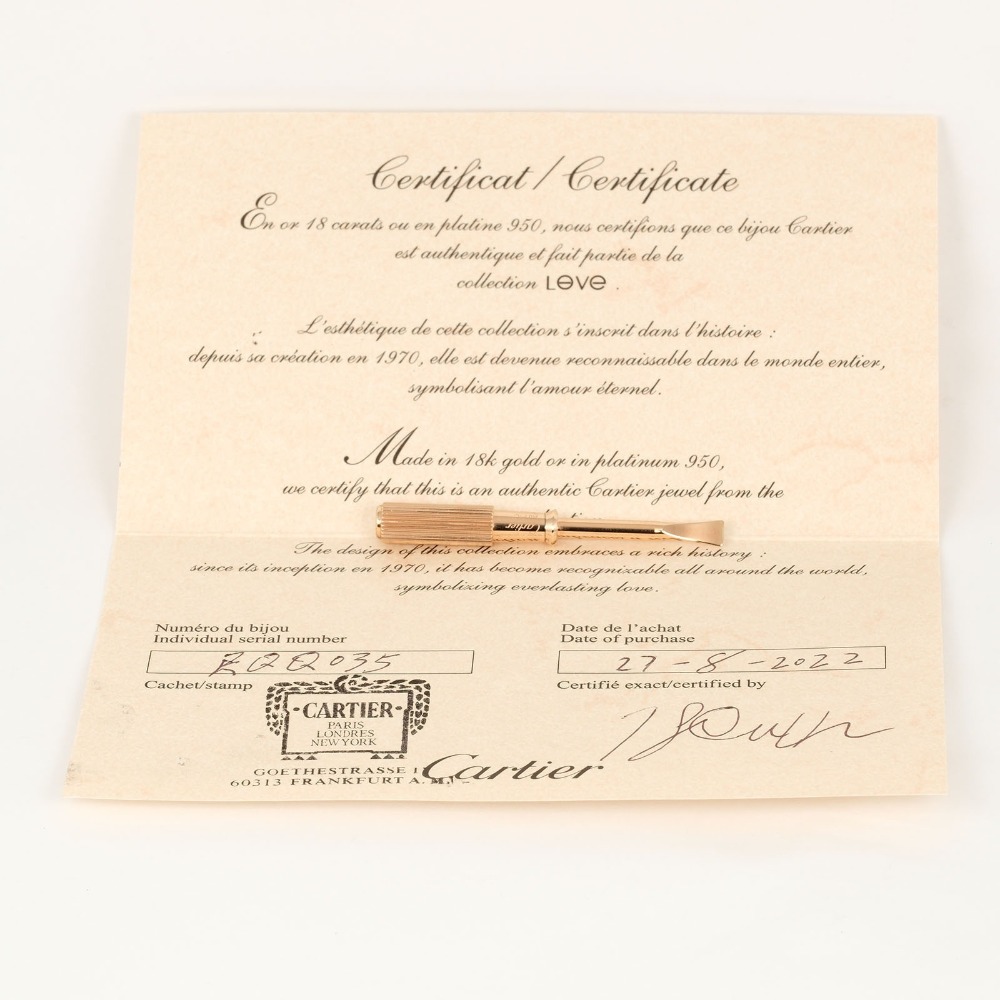 Certificat / Certificate
En or 18 carats ou en platine 950, nous certifions que ce bijou Cartier
est authentique et fait partie de la
collection LOVE .
L'esthétique de cette collection s'inscrit dans l'histoire :
depuis sa création en 1970, elle est devenue reconnaissable dans le monde entier,
symbolisant l'amour éternel.
Made in 18k gold or in platinum 950,
we certify that this is an authentic Cartier jewel from the
Cartier
The design of this collection embraces a rich history :
since its inception en 1970, it has become recognizable all around the world,
symbolizing everlasting love.
Numéro du bijou
Individual serial number
Date de l'achat
Date of purchase
ZQQ035
27-8-2022
Cachet/stamp
Certifié exact/certified by
·CARTIER·
PARIS
LONDRES
NEW YORK
GOETHESTRASSE
60313 FRANKFURT A. M.
Cartier